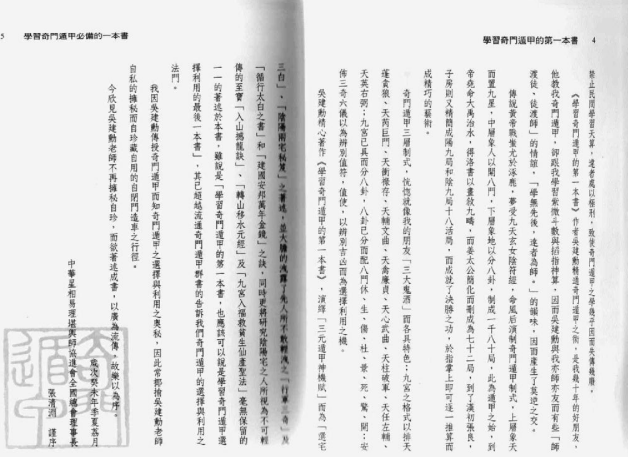 學習奇門遁甲的第一本書 4
禁止民間學習天算,違者處以極刑,致使奇門遁甲之學幾乎因而失傳幾廢。
《學習奇門遁甲的第一本書》作者吳建勳精通奇門遁甲之術,是我幾十年的好朋友,
他教我奇門遁甲,卻跟我學習紫微斗數與招指神算,因而吳建勳與我亦師亦友而有些「師
渡徒,徒渡師」的情誼,「學無先後,達者為師。」的韻味,因而產生了莫逆之交。
傳說黃帝戰蚩尤於涿鹿,夢受九天玄女陰符經,命風后演制奇門遁甲制式,上層象天
而置九星,中層象人以開八門,下層象地以分八卦,制成一千八十局,此為遁甲之始,到
帝堯命大禹治水,得洛書以畫敘九疇,而姜太公簡化而刪成為七十二局,到了漢初張良,
子房則又精簡成陽九局和陰九局十八活局,而成就了決勝之功,於指掌上即可逐一推算而
成精巧的藝術。
奇門遁甲三層制式,恍惚就像我的朋友「三大鬼酒」而各具特色;九宮之格式以排天
蓬貪狼、天芮巨門、天衝祿存、天輔文曲、天禽廉貞、天心武曲、天柱破軍、天任左輔、
天英右弼;九宮已具而分八卦,八卦已分而配八門休、生、傷、杜、景、死、驚、開;安
佈三奇六儀以為辨別值符,值使,以辨別吉凶而為選擇利用之機。
吳建勳精心著作《學習奇門遁甲的第一本書》,演繹「三元遁甲神機賦」而為「選宅
5 學習奇門遁甲必備的一本書
三白」、「陰陽兩宅秘笈」之著述,並大膽的洩露了先人所不敢輕洩之「行軍三奇」及
「循行太白之書」和「建國安邦萬年金鏡」之訣,同時更將研究陰陽宅之人所視為不可輕
傳的至寶「入山撼龍訣」、「轉山移水元經」及「九宮入福救貧生仙產聖法」毫無保留的
一一的著述於本書,雖說是「學習奇門遁甲的第一本書,也應該可以說是學習奇門遁甲選
擇利用的最後一本書」,其已超越流通奇門遁甲群書的告訴我們奇門遁甲的選擇與利用之
法門。
我因吳建勳傳授奇門遁甲而知奇門遁甲之選擇與利用之奧秘,因此常鄙搶吳建勳老師
自私的擁秘而自珍藏自用的自閉門造車之行徑。
今欣見吳建勳老師不再擁秘自珍,而欲著述成書,以廣為流傳。故樂以為序。
歲次癸未年季夏荔月
中華星相易理堪輿師協進會全國總會理事長
張清淵 謹序
奇門遁甲